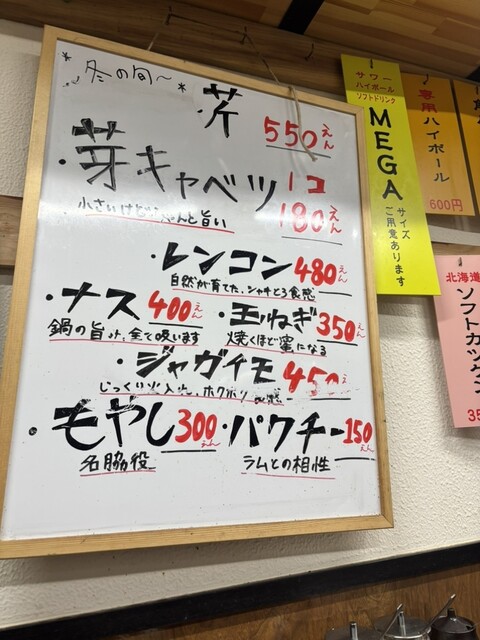 冬の旬〜
・芹 550えん
・芽キャベツ 1コ 180えん
小さいけどちゃんと旨い
・レンコン 480えん
自然が育てた、シャキとろ食感
・ナス 400えん
鍋の旨み、全て吸います
・玉ねぎ 350えん
焼くほど蜜になる
・ジャガイモ 450え
じっくり火入れ、ホクホク
・もやし 300えん
名脇役
・パクチー 150えん
ラムとの相性
サワー
ハイボール
ソフトドリンク
MEGA
サイズ
ご用意あります
専用ハイボール
600円
北海道
ソフトカツゲン
35